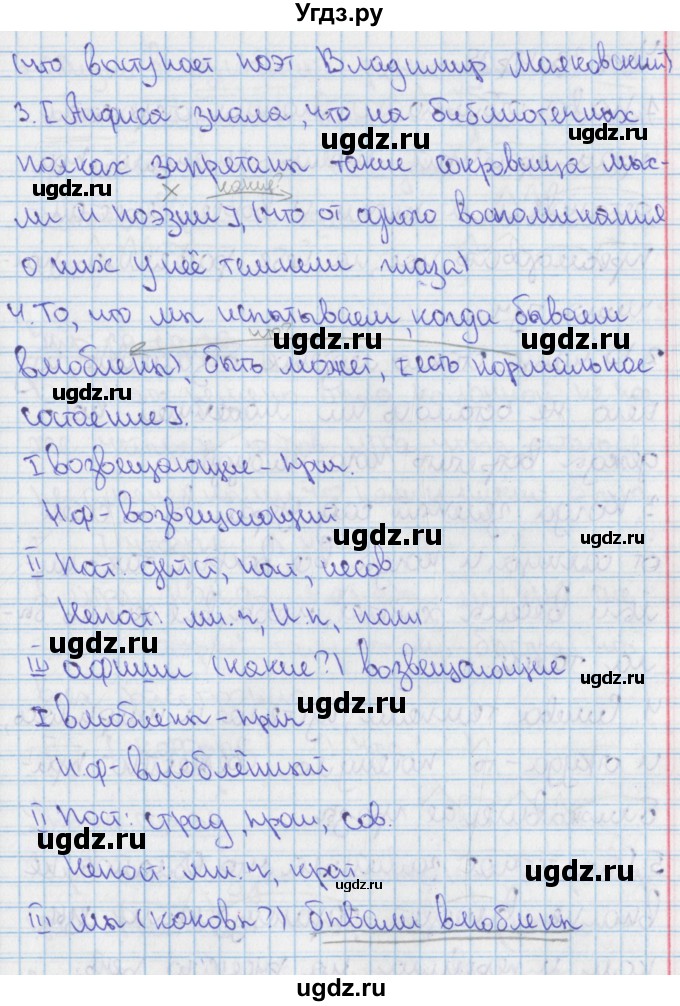 Угдз.ру
(что выступает поэт Владимир Маяковский)
3. [Анфиса знала, что на библиотечных
ugdz.ru
полках запретаны такие сокровища мыс-
ugdz.ru ugdz.ru
какие?
ли и поэзии], (что от одного воспоминания
о них у неё темнели глаза)
ugdz.ru
4. То, что мы испытываем, когда бываем
ugdz.ru
что?
влюблены), быть может, [есть нормальное
ugdz.ru
состоение].
I возвещающие - прич.
Н.ф - возвещающий
ugdz.ru ugdz.ru
II Пост: дейст, наст, несов
Непост: мн.ч, И.п, полн
ugdz.ru
III афиши (какие?) возвещающие
ugdz.ru
I влюблены - прич
Н.ф - влюблённый
II Пост: страд, прош, сов.
ugdz.ru
Непост: мн.ч, крат.
ugdz.ru
ugdz.ru
III мы (каковы?) бывали влюблены
ugdz.ru ugdz.ru